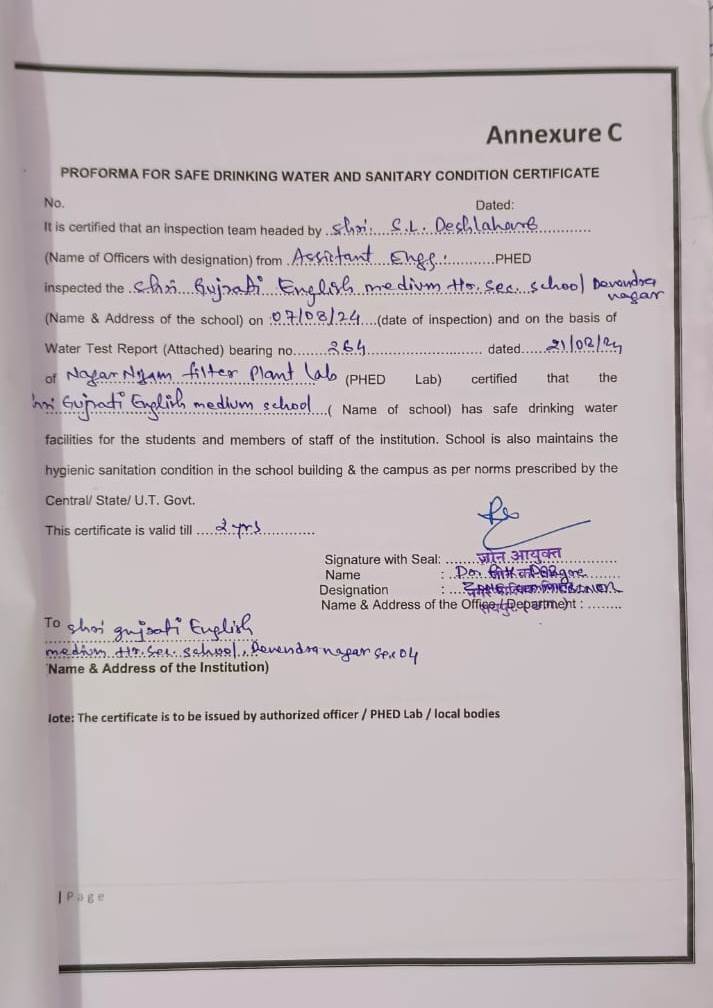 Annexure C
PROFORMA FOR SAFE DRINKING WATER AND SANITARY CONDITION CERTIFICATE
No. Dated:
It is certified that an inspection team headed by Shri. S.L. Deshlahare
(Name of Officers with designation) from Assistant Engg. PHED
inspected the Shri Gujrati English medium Hr. Sec. school Devendra nagar
(Name & Address of the school) on 07/08/24 (date of inspection) and on the basis of
Water Test Report (Attached) bearing no. 264 dated 21/08/24
of Nagar Nigam filter Plant lab (PHED Lab) certified that the
hri Gujrati English medium school ( Name of school) has safe drinking water
facilities for the students and members of staff of the institution. School is also maintains the
hygienic sanitation condition in the school building & the campus as per norms prescribed by the
Central/ State/ U.T. Govt.
This certificate is valid till 2 yrs
Signature with Seal: जोन आयुक्त
Name : Dr.
Designation :
Name & Address of the Office / Department :
To Shri gujrati English
medium Hr. Sec. school, Devendra nagar Sec 04
Name & Address of the Institution)
lote: The certificate is to be issued by authorized officer / PHED Lab / local bodies
| Page